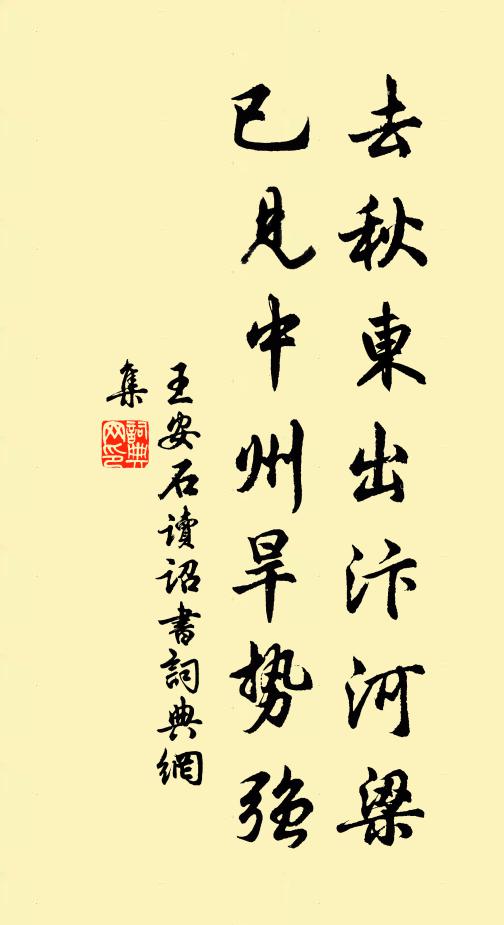 去秋東出汴河梁
已見中州旱勢強
王安石讀詔書詞典網
集
詞典
网印